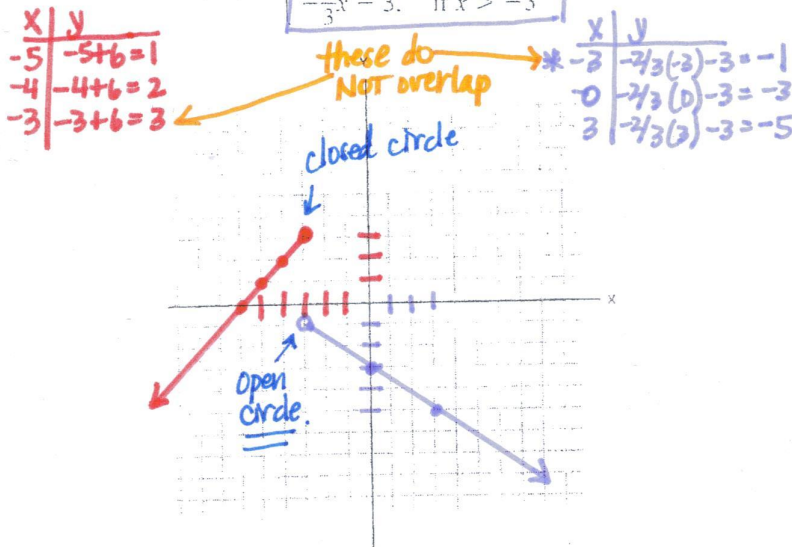 -2/3 x - 3. if x > -3
x | y
-5 | -5+6=1
-4 | -4+6=2
-3 | -3+6=3
these do
NOT overlap
x | y
* -3 | -2/3(-3)-3=-1
-0 | -2/3(0)-3=-3
3 | -2/3(3)-3=-5
closed circle
x
open
circle.